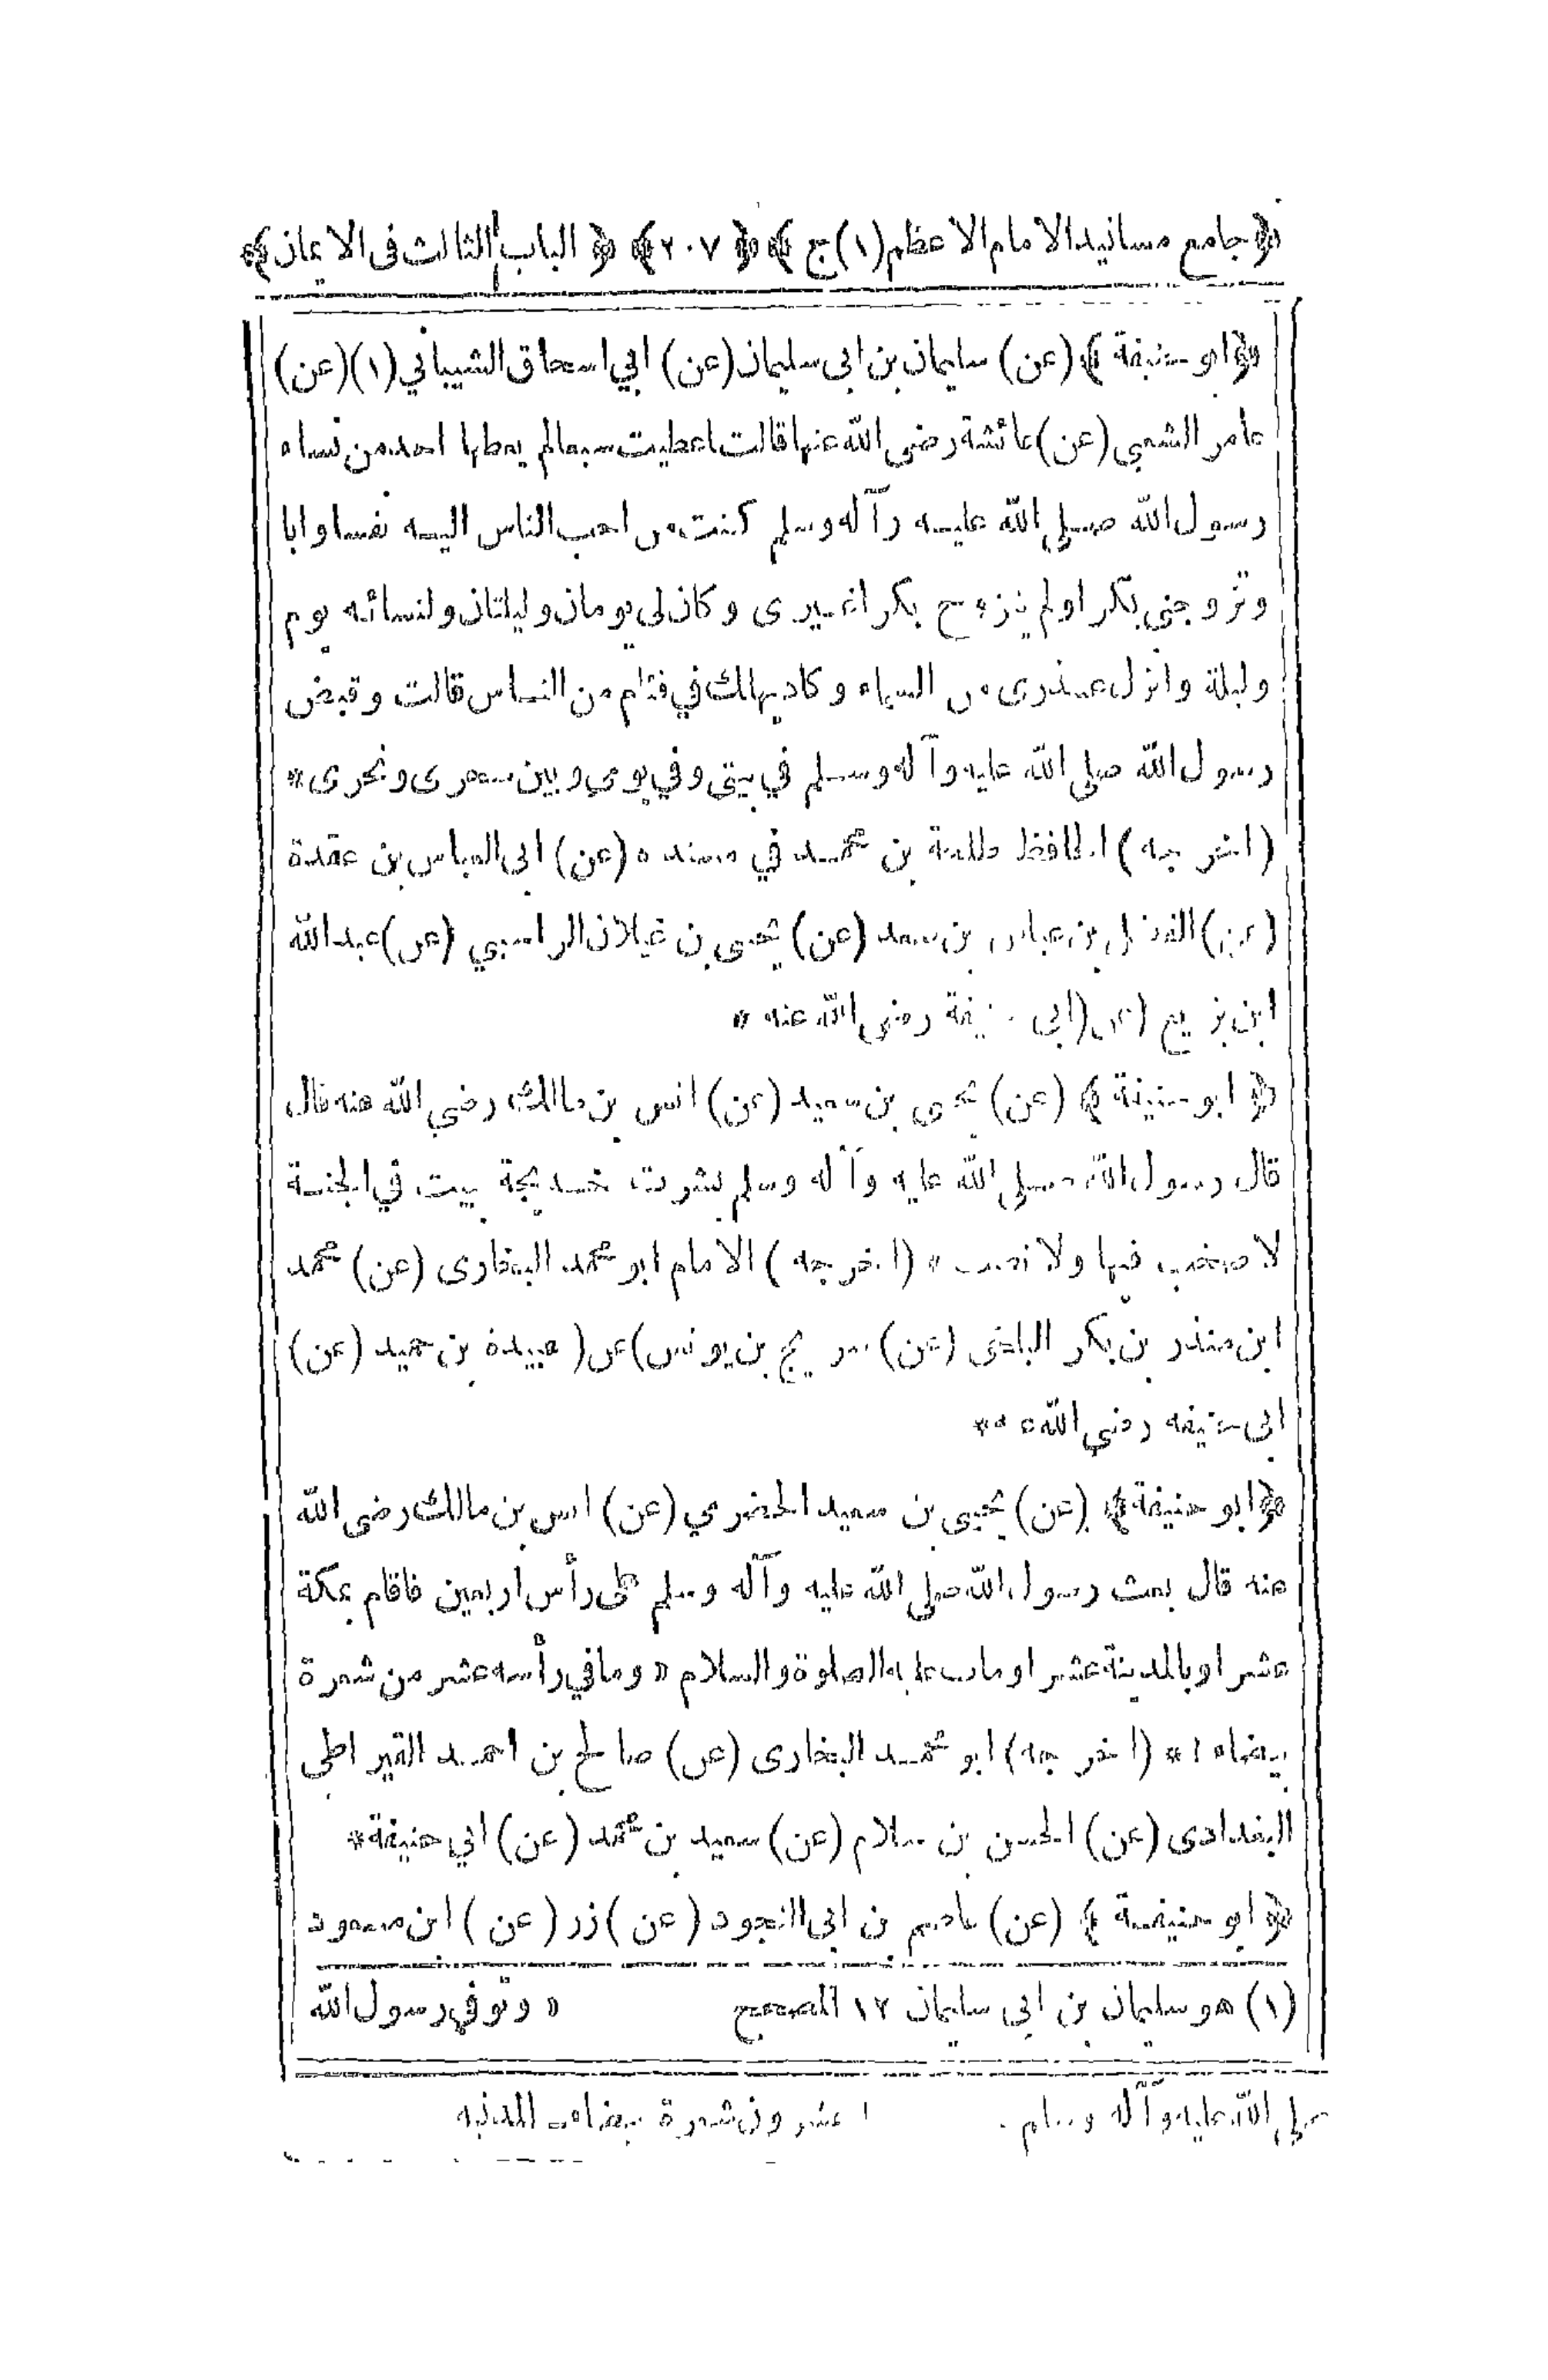 ﴿جامع مسانيد الامام الاعظم (١) ج﴾ ﴿٢٠٧﴾ ﴿الباب الثالث فى الايمان﴾
﴿ابو حنيفة﴾ (عن) سليمان بن ابى سليمان (عن) ابي اسحاق الشيباني (١) (عن)
عامر الشعبي (عن) عائشة رضى الله عنها قالت اعطيت سبعالم يعطها احد من نساء
رسول الله صلى الله عليه وآله وسلم كنت من احب الناس اليه نفسا وابا
وتزوجني بكرا ولم يتزوج بكرا غيرى وكان لى يومان وليلتان ولنسائه يوم
وليلة وانزل عذرى من السماء وكاد يهلك في فئام من الناس قالت وقبض
رسول الله صلى الله عليه وآله وسلم في بيتى وفي يومى وبين سحرى ونحرى *
(اخرجه) الحافظ طلحة بن محمد في مسنده (عن) ابى العباس بن عقدة
(عن) الفضل بن عباس بن سعد (عن) يحيى بن غيلان الراسبي (عن) عبد الله
ابن بزيع (عن) ابى حنيفة رضى الله عنه *
﴿ابو حنيفة﴾ (عن) يحيى بن سعيد (عن) انس بن مالك رضي الله عنه قال
قال رسول الله صلى الله عليه وآله وسلم بشرت خديجة ببيت في الجنة
لا صخب فيها ولا نصب * (اخرجه) الامام ابو محمد البخارى (عن) محمد
ابن منذر بن بكر البلخى (عن) سريج بن يونس (عن) عبيدة بن حميد (عن)
ابى حنيفه رضي الله عنه *
﴿ابو حنيفة﴾ (عن) يحيى بن سعيد الحضرمي (عن) انس بن مالك رضى الله
عنه قال بعث رسول الله صلى الله عليه وآله وسلم على رأس اربعين فاقام بمكة
عشرا وبالمدينة عشرا ومات عليه الصلوة والسلام * وما في رأسه عشر من شعرة
بيضاء ١ * (اخرجه) ابو محمد البخارى (عن) صالح بن احمد القيراطى
البغدادى (عن) الحسن بن سلام (عن) سعيد بن محمد (عن) ابي حنيفة *
﴿ابو حنيفة﴾ (عن) عاصم بن ابى النجود (عن) زر (عن) ابن مسعود
(١) هو سليمان بن ابى سليمان ١٢ المصحح * وتوفي رسول الله
صلى الله عليه وآله وسلم ١ عشرون شعرة بيضاء